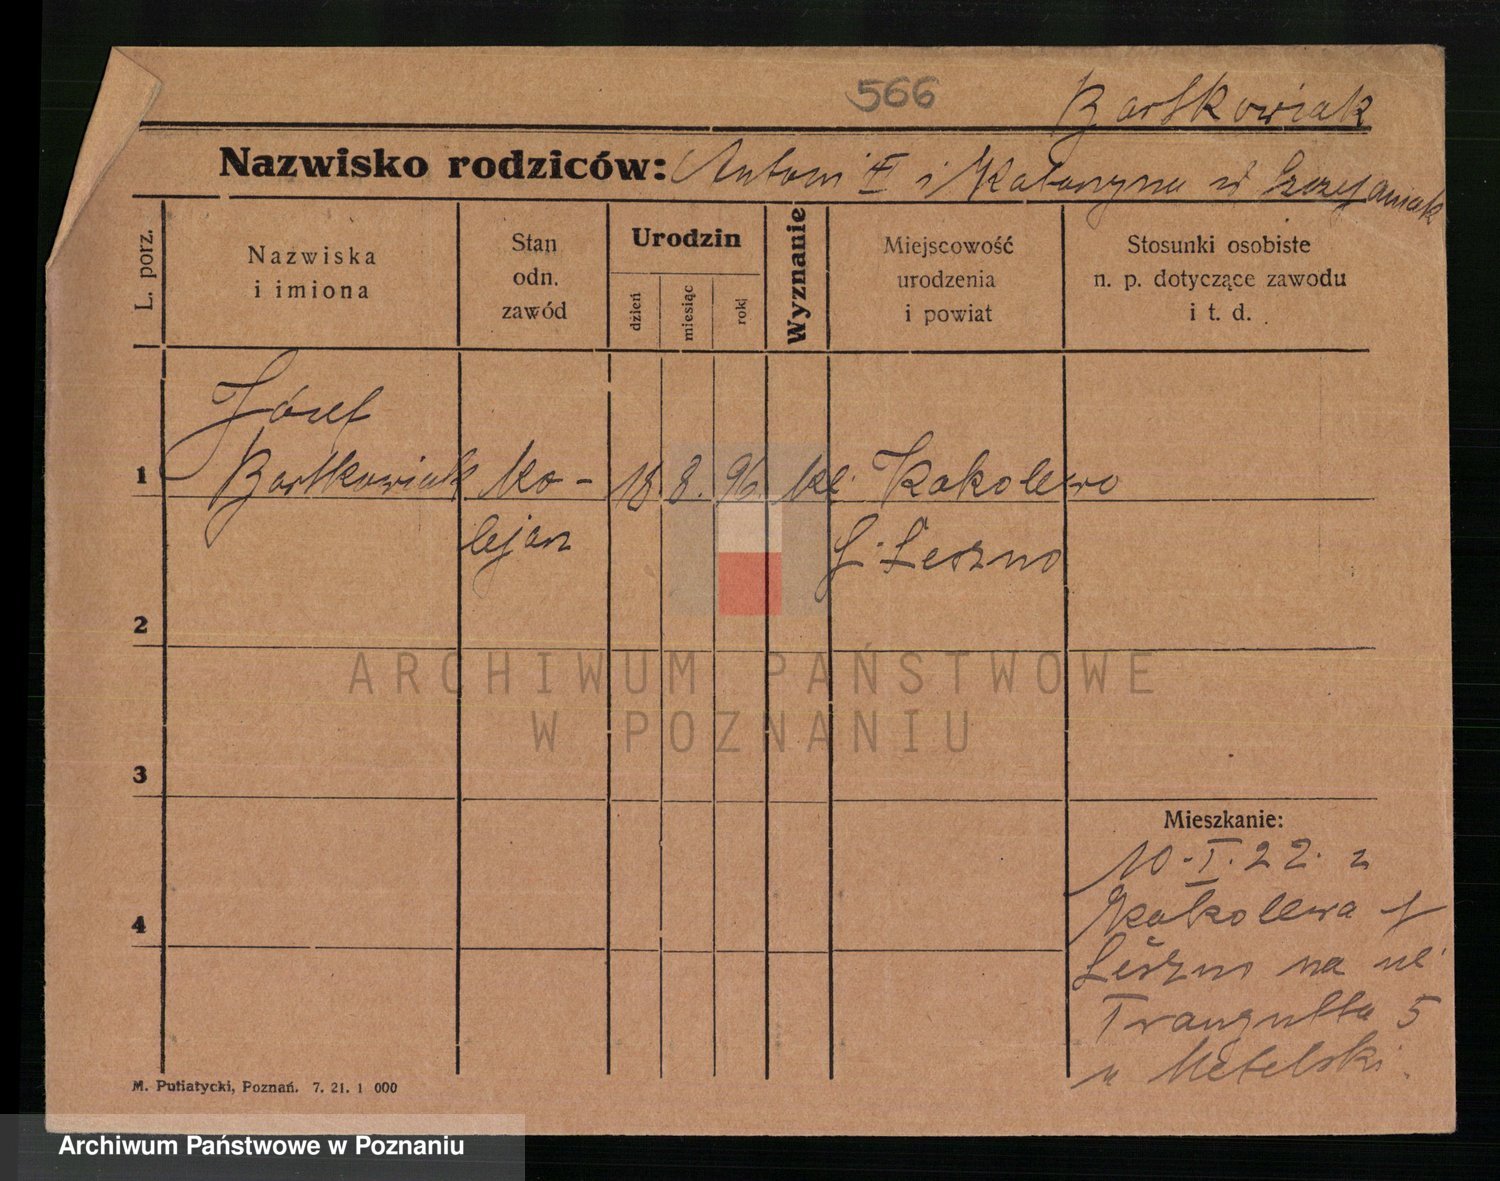 566
Bartkowiak
Nazwisko rodziców: Antoni i Katarzyna
L. porz.
Nazwiska
i imiona
Stan
odn.
zawód
Urodzin
dzień
miesiąc
rok
Wyznanie
Miejscowość
urodzenia
i powiat
Stosunki osobiste
n. p. dotyczące zawodu
i t. d.
Józef
1 Bartkowiak ko- 18. 8. 96. kt. Kąkolewo
lejarz Leszno
2
3
4
Mieszkanie:
10.I.22. z
Kąkolewa
Leszno na ul.
5
u Metelski.
M. Putiatycki, Poznań. 7. 21. 1 000
ARCHIWUM PAŃSTWOWE
W POZNANIU
Archiwum Państwowe w Poznaniu